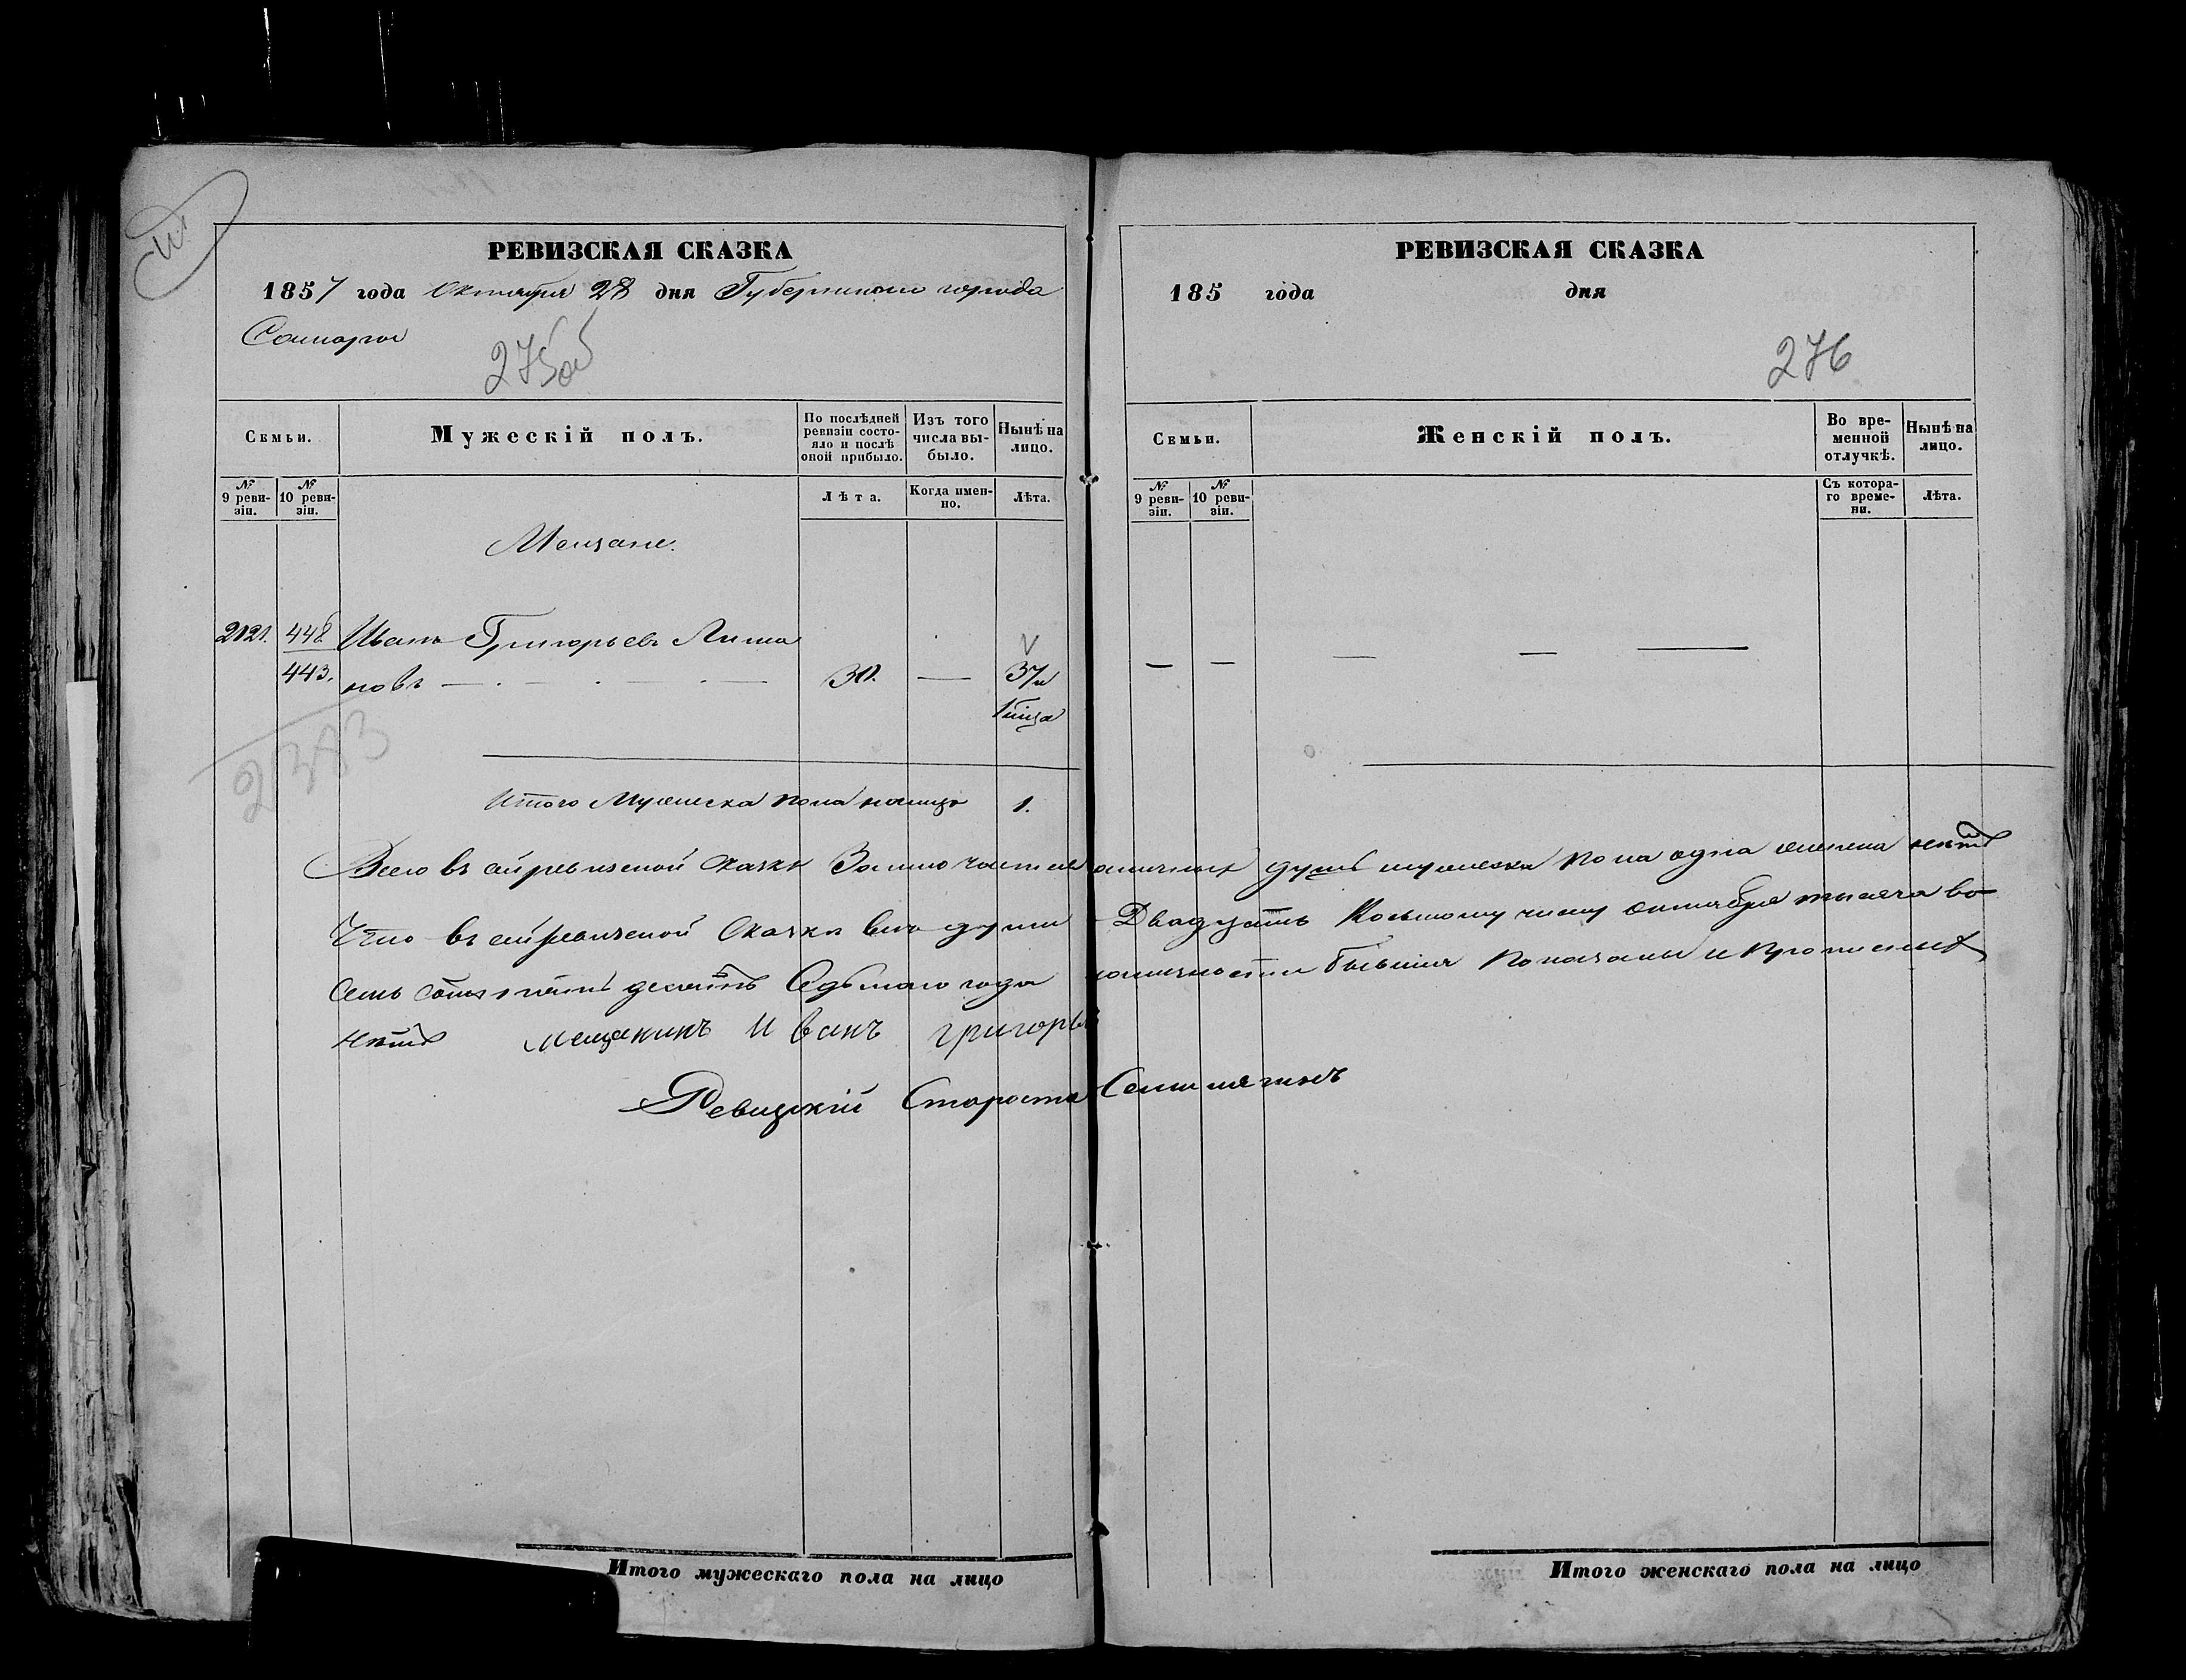 РЕВИЗСКАЯ СКАЗКА
1857 года Октября 28 дня Губернскаго города
Самары
275 об
Семьи.
Мужескій полъ.
По послѣдней ревизіи состояло и послѣ оной прибыло.
Изъ того числа выбыло.
Нынѣ на лицо.
№ 9 ревизіи.
№ 10 ревизіи.
Лѣта.
Когда именно.
Лѣта.
Мещане.
2121. 448 Иванъ Григорьевъ Лима
443. новъ 30. — 37
2383
Итого Мужеска пола налицо 1.
Всего въ сей ревизской сказкѣ
Что въ сей ревизской сказкѣ все души
семь сотъ пятьдесятъ Седьмаго года
нѣтъ мещанинъ Иванъ григорьев
Ревизскій Староста
Итого мужескаго пола на лицо
РЕВИЗСКАЯ СКАЗКА
185 года дня
276
Семьи.
Женскій полъ.
Во временной отлучкѣ.
Нынѣ на лицо.
№ 9 ревизіи.
№ 10 ревизіи.
Съ котораго времени.
Лѣта.
наличныхъ душъ мужеска пола одна женска нѣтъ
Двадцать Восьмому числу октября тысяча во
наличности бывшія показаны и прописныхъ
Итого женскаго пола на лицо